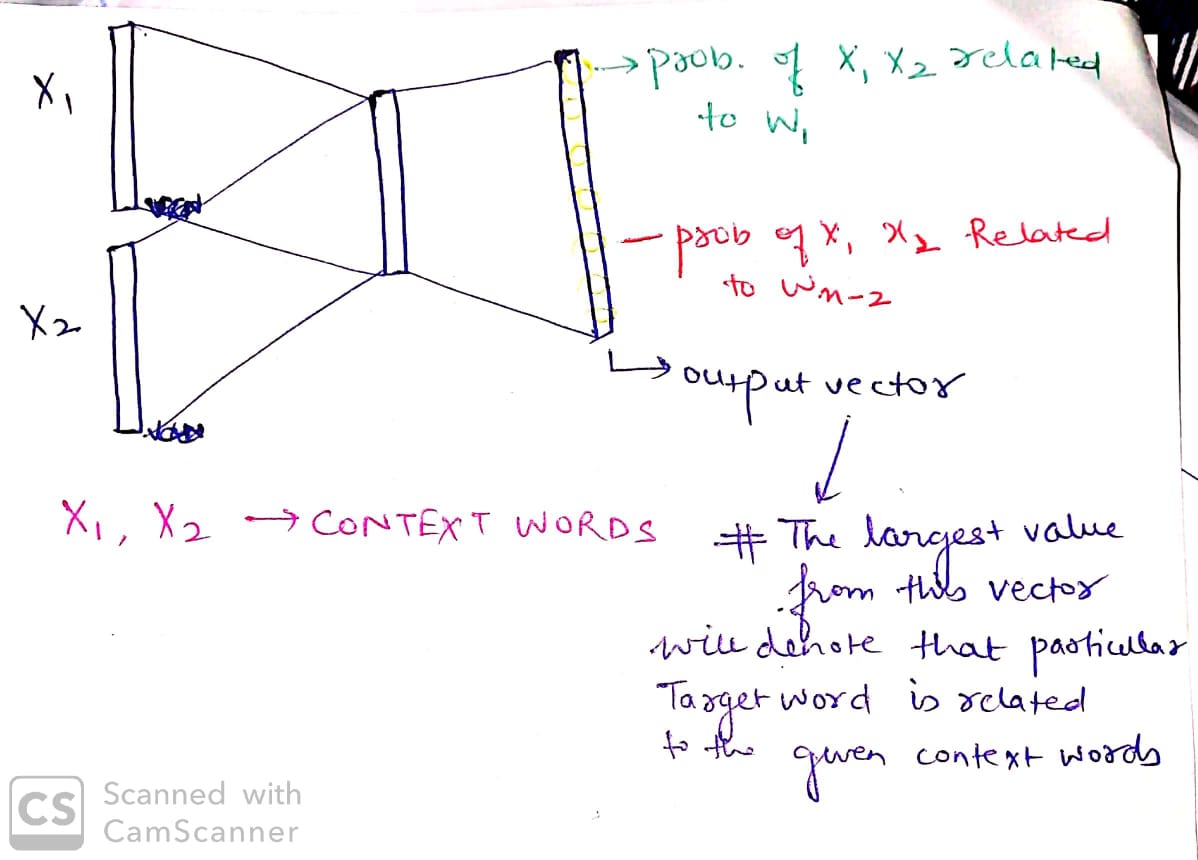 X1
→ prob. of X1 X2 related
to W1
- prob of X1 X2 Related
to Wn-2
X2
↳ output vector
X1, X2 → CONTEXT WORDS
# The largest value
from this vector
will denote that particular
Target word is related
to the given context words
CS
Scanned with
CamScanner